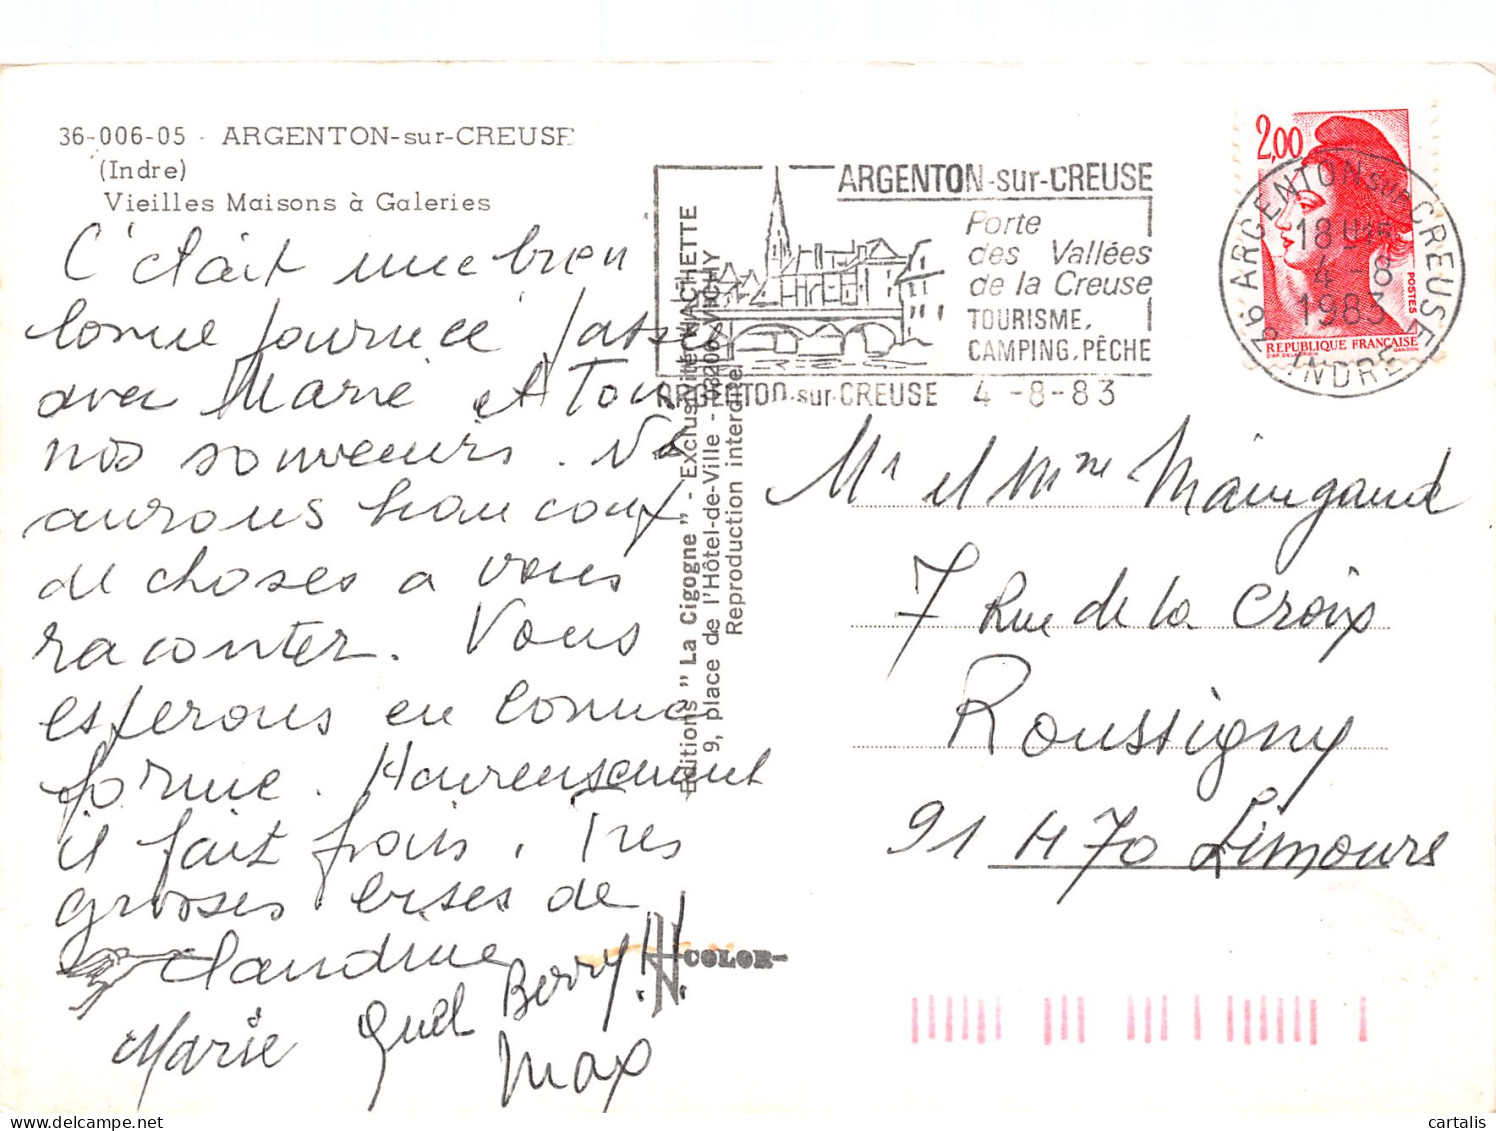 36-006-05 - ARGENTON-sur-CREUSE
(Indre)
Vieilles Maisons à Galeries
C'était une bien
bonne journée passée
avec Marie et Tous
nos souvenirs. Ns
aurons beaucoup
de choses a vous
raconter. Vous
esperons en bonne
forme. Heureusement
il fait frais. Très
grosses bises de
Claudine
Marie
Quel Berry!!
Max
Editions "La Cigogne" - Exclusivité HACHETTE
9, place de l'Hôtel-de-Ville - 03200 VICHY
Reproduction interdite
COLOR
ARGENTON-sur-CREUSE
Porte
des Vallées
de la Creuse
TOURISME,
CAMPING, PÊCHE
ARGENTON-sur-CREUSE 4-8-83
2,00
POSTES
REPUBLIQUE FRANÇAISE
GANDON
36 ARGENTON sur CREUSE
4-8
1983
INDRE
Mr et Mme Maingaud
7 Rue de la Croix
Roussigny
91470 Limours
cartalis